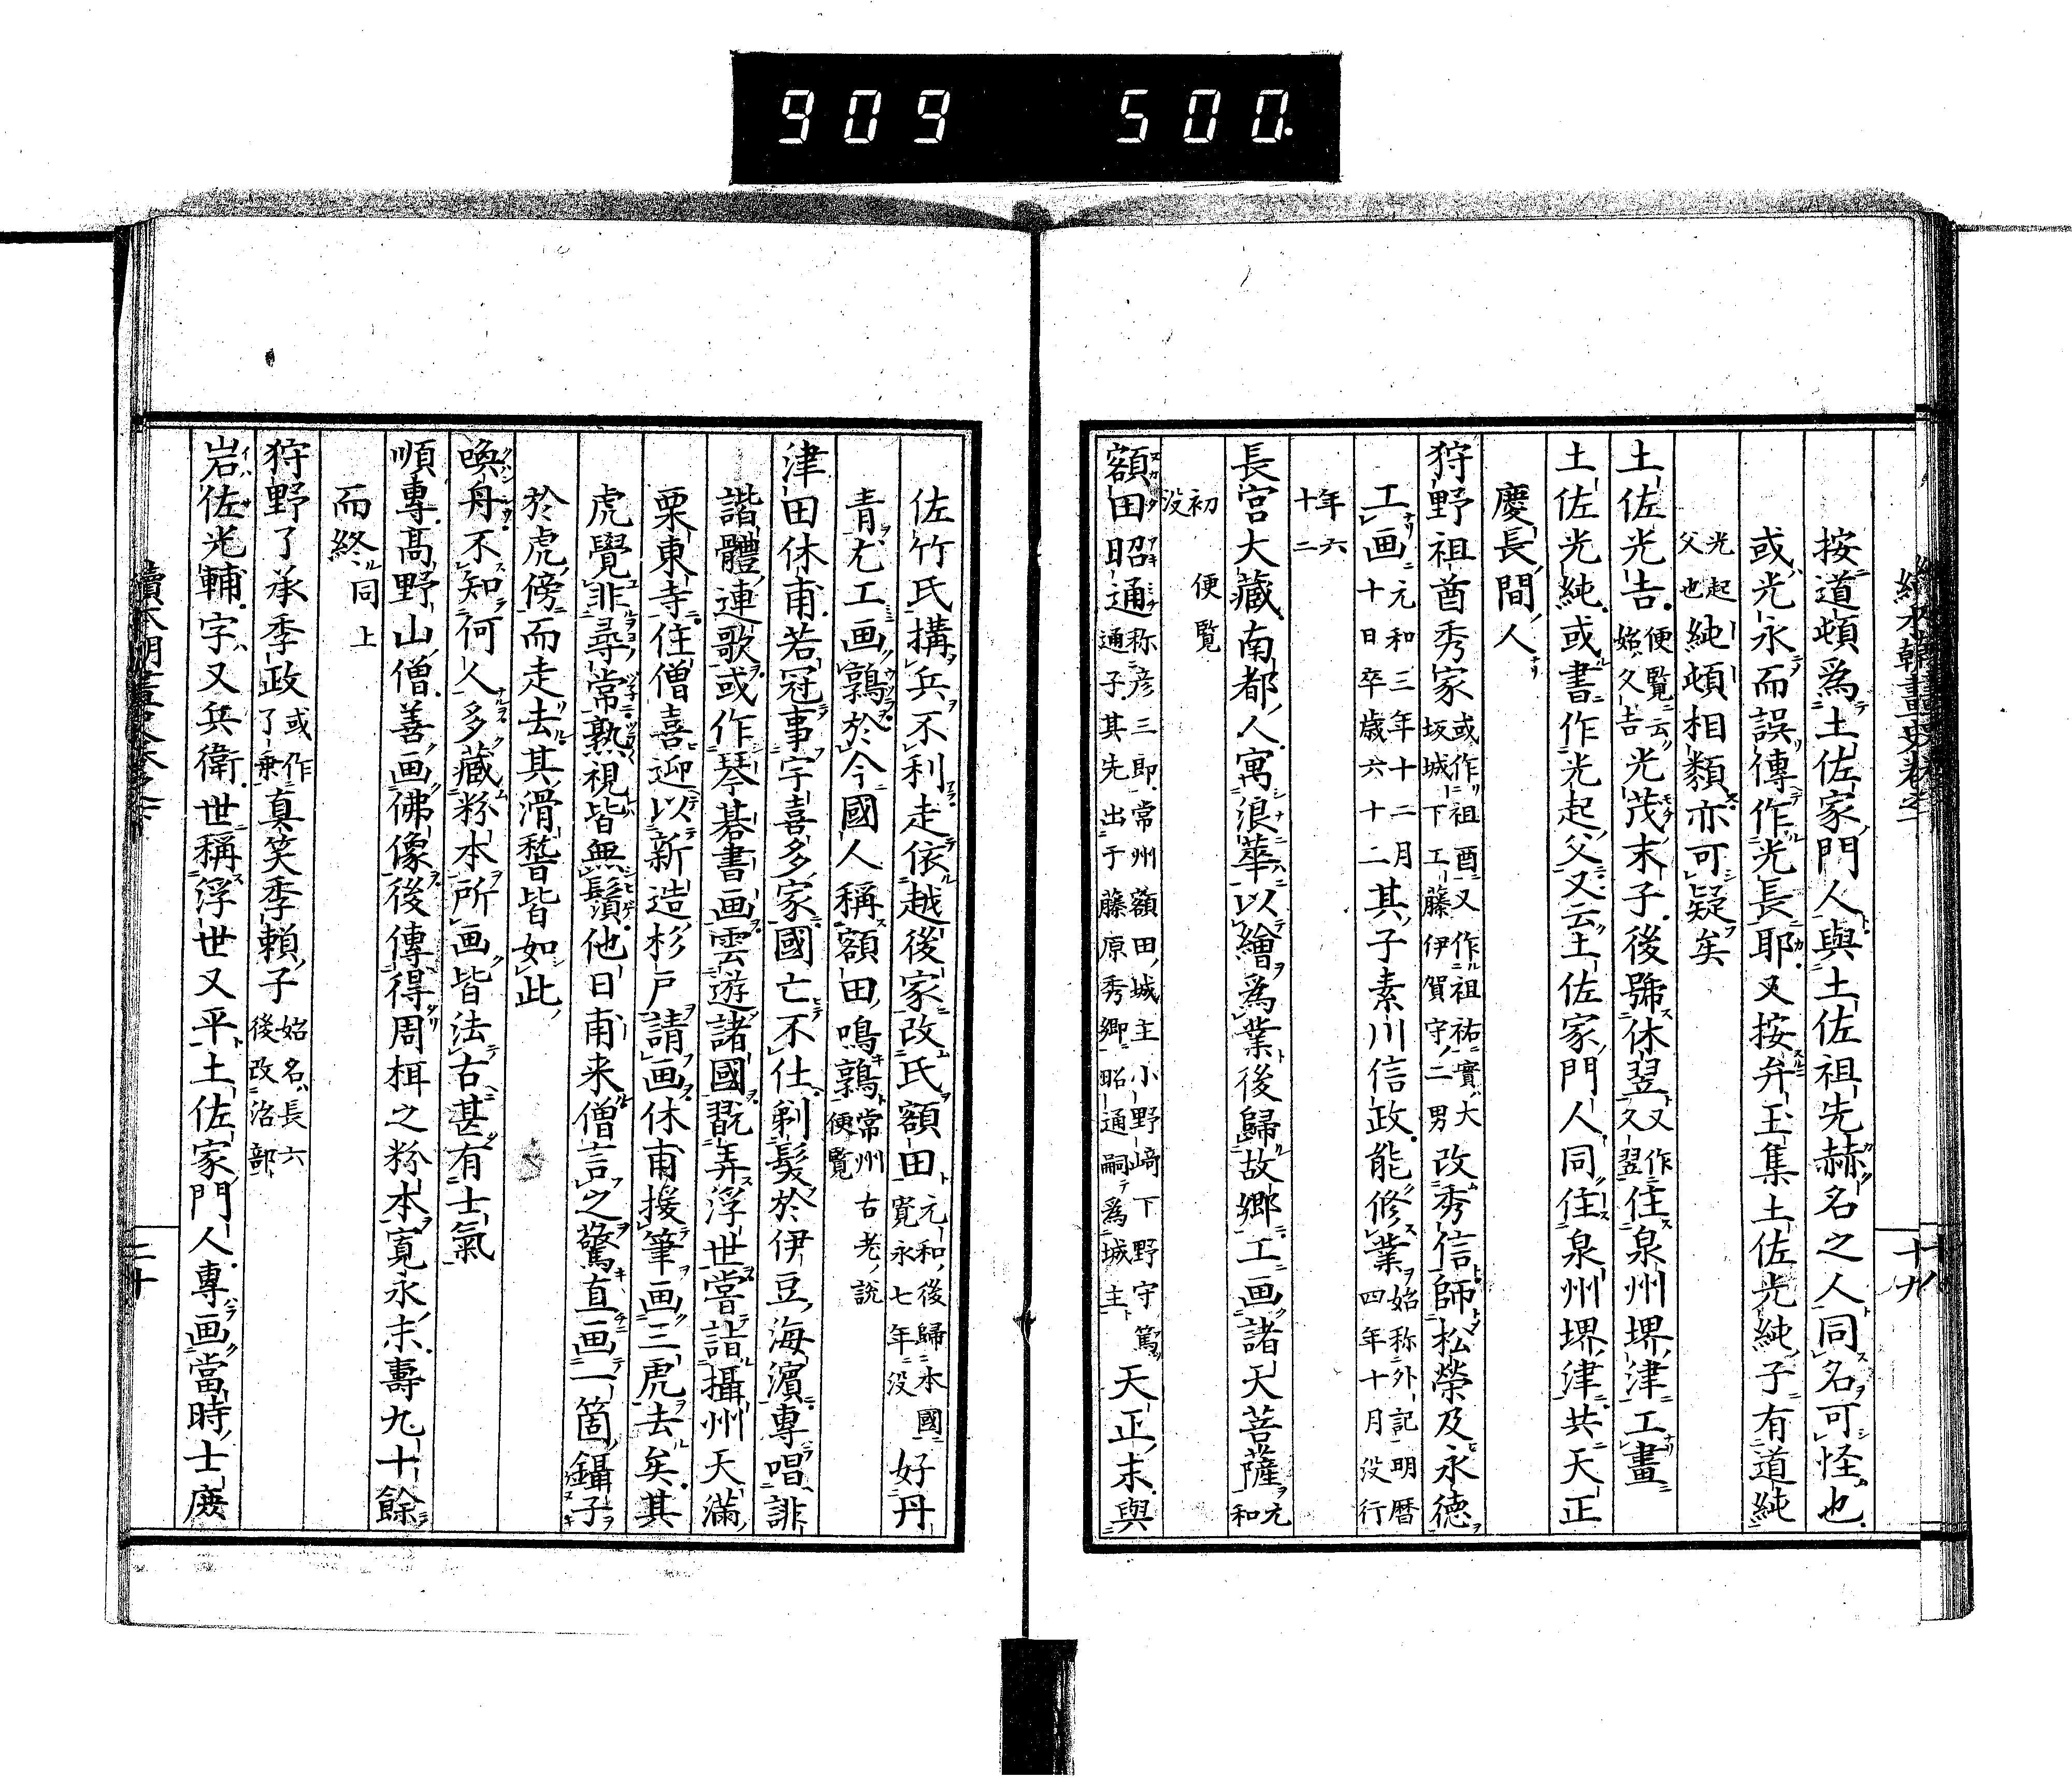 909 500
按道頓爲土佐家門人與土佐祖先赫名之人同名可怪也
或光永而誤傳作光長耶又按弁玉集土佐光純子有道純
光起父也純頓相類亦可疑矣
土佐光吉便覧云始久吉光茂末子後號休翌又作久翌住泉州堺津工畫
土佐光純或書作光起父又云土佐家門人同住泉州堺津共天正
慶長間人
狩野祖酉秀家或作祖酉又作祖祐實大坂城下工藤伊賀守二男改秀信師松榮及永德
工画元和三年十二月十日卒歳六十二其子素川信政能修業始称外記明暦四年十月没行
年六十二
長宮大藏南都人寓浪華以繪爲業後歸故鄉工画諸天菩薩元和
初没 便覧
額田昭通称彦三郎常州額田城主小野﨑下野守篤通子其先出于藤原秀郷昭通嗣爲城主天正末與
佐竹氏搆兵不利走依越後家改氏額田元和後歸本國寛永七年没好丹
青尤工画鶉於今國人稱額田鳴鶉常州古老説便覧
津田休甫若冠事宇喜多家國亡不仕剃髪於伊豆海濱專唱誹
諧體連歌或作琴碁書画雲遊諸國翫弄浮世嘗詣攝州天滿
栗東寺住僧喜迎以新造杉戸請画休甫援筆画三虎去矣其
虎覺非尋常熟視皆無鬚他日甫来僧言之驚直画一箇鑷子
於虎傍而走去其滑稽皆如此
喚舟不知何人多藏粉本所画皆法古甚有士氣
順專高野山僧善画佛像後傳得周楫之粉本寛永末壽九十餘
而終同上
狩野了承季政或作了乗真笑季頼子始名長六後改治部
岩佐光輔字又兵衛世稱浮世又平土佐家門人專画當時士庶
十九
二十